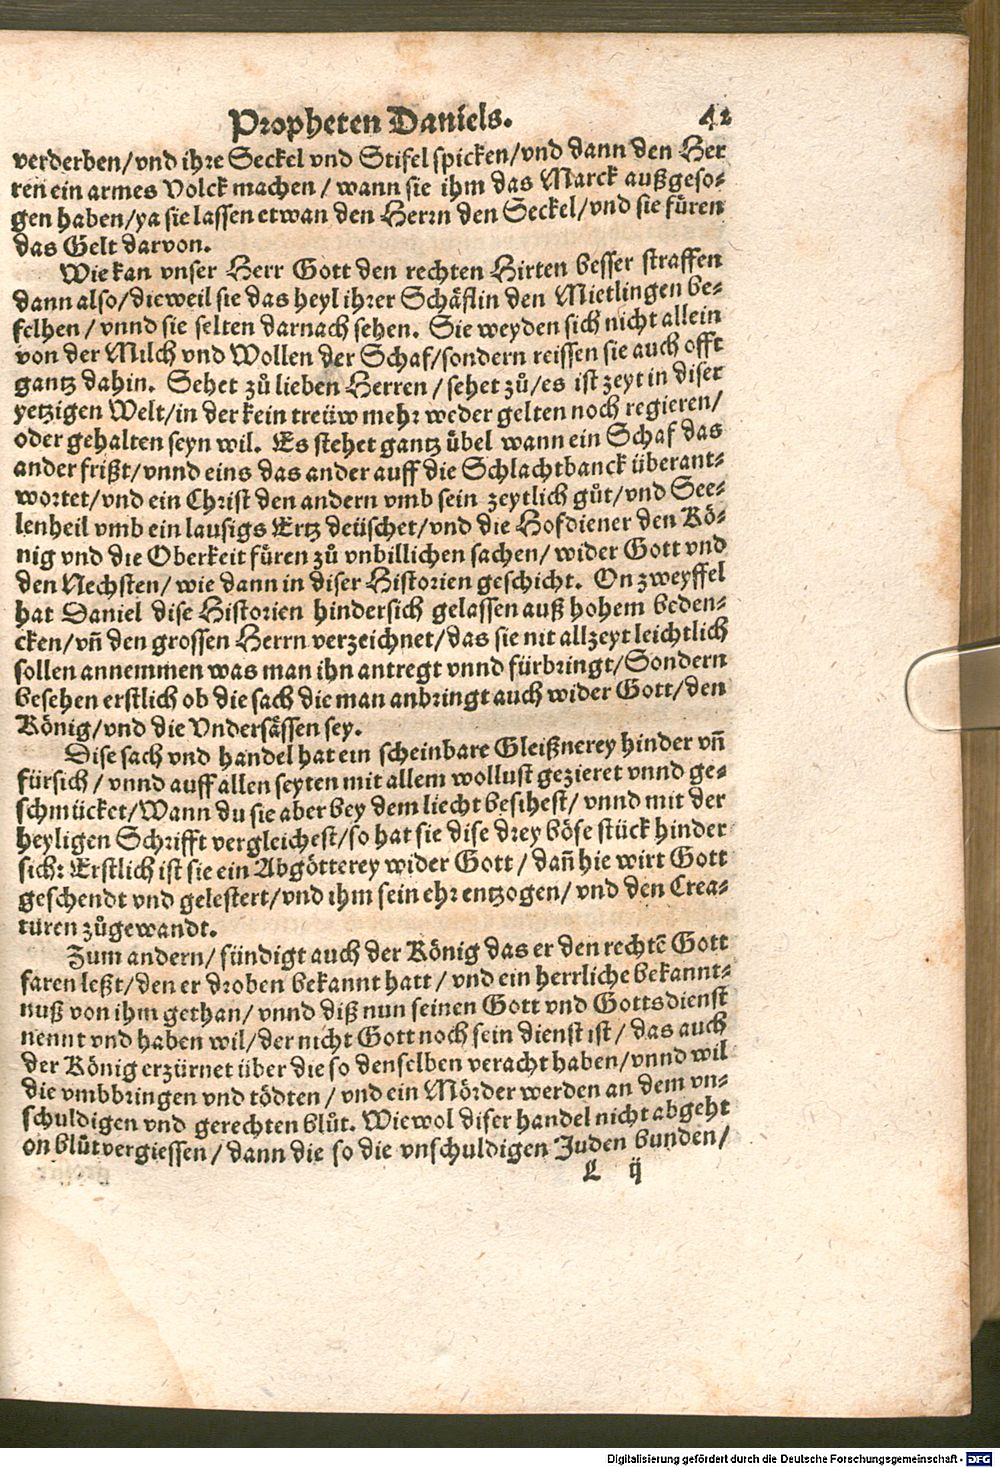 Propheten Daniels. 42
verderben/vnd ihre Seckel vnd Stifel spicken/vnd dann den Her
ren ein armes Volck machen / wann sie ihm das Marck außgeso⸗
gen haben/ya sie lassen etwan den Herrn den Seckel/vnd sie füren
das Gelt darvon.
Wie kan vnser Herr Gott den rechten Hirten besser straffen
dann also/dieweil sie das heyl ihrer Schäflin den Mietlingen be⸗
felhen / vnnd sie selten darnach sehen. Sie weyden sich nicht allein
von der Milch vnd Wollen der Schaf/sondern reissen sie auch offt
gantz dahin. Sehet zů lieben Herren / sehet zů/es ist zeyt in diser
yetzigen Welt/in der kein treüw mehr weder gelten noch regieren/
oder gehalten seyn wil. Es stehet gantz übel wann ein Schaf das
ander frißt/vnnd eins das ander auff die Schlachtbanck überant⸗
wortet/vnd ein Christ den andern vmb sein zeytlich gůt/vnd See⸗
lenheil vmb ein lausigs Ertz deüschet/vnd die Hofdiener den Kö⸗
nig vnd die Oberkeit füren zů vnbillichen sachen/ wider Gott vnd
den Nechsten/ wie dann in diser Historien geschicht. On zweyffel
hat Daniel dise Historien hindersich gelassen auß hohem beden⸗
cken/vñ den grossen Herrn verzeichnet/das sie nit allzeyt leichtlich
sollen annemmen was man ihn antregt vnnd fürbringt/Sondern
besehen erstlich ob die sach die man anbringt auch wider Gott/den
König/vnd die Vndersässen sey.
Dise sach vnd handel hat ein scheinbare Gleißnerey hinder vñ
fürsich / vnnd auff allen seyten mit allem wollust gezieret vnnd ge⸗
schmücket/Wann du sie aber bey dem liecht besihest/ vnnd mit der
heyligen Schrifft vergleichest/so hat sie dise drey böse stück hinder
sich: Erstlich ist sie ein Abgötterey wider Gott / dañ hie wirt Gott
geschendt vnd gelestert/vnd ihm sein ehr entzogen/ vnd den Crea⸗
turen zůgewandt.
Zum andern/ sündigt auch der König das er den rechtē Gott
faren leßt/den er droben bekannt hatt / vnd ein herrliche bekannt⸗
nuß von ihm gethan/ vnnd diß nun seinen Gott vnd Gottsdienst
nennt vnd haben wil/der nicht Gott noch sein dienst ist / das auch
der König erzürnet über die so denselben veracht haben/vnnd wil
die vmbbringen vnd tödten / vnd ein Mörder werden an dem vn⸗
schuldigen vnd gerechten blůt. Wiewol diser handel nicht abgeht
on blůtvergiessen / dann die so die vnschuldigen Juden bunden/
L ij
Digitalisierung gefördert durch die Deutsche Forschungsgemeinschaft - DFG